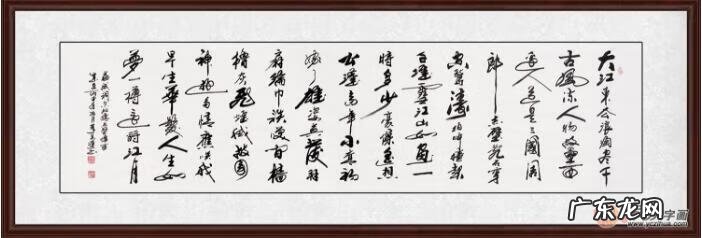 大江東去浪淘盡千
古風流人物故壘西
邊人道是三國周
郎赤壁亂石穿
空驚濤拍岸捲起
千堆雪江山如畫一
時多少豪傑遙想
公瑾當年小喬初
嫁了雄姿英發羽
扇綸巾談笑間檣
櫓灰飛煙滅故國
神遊多情應笑我
早生華髮人生如
夢一樽還酹江月
字画
www.yczihua.com
广东龙网